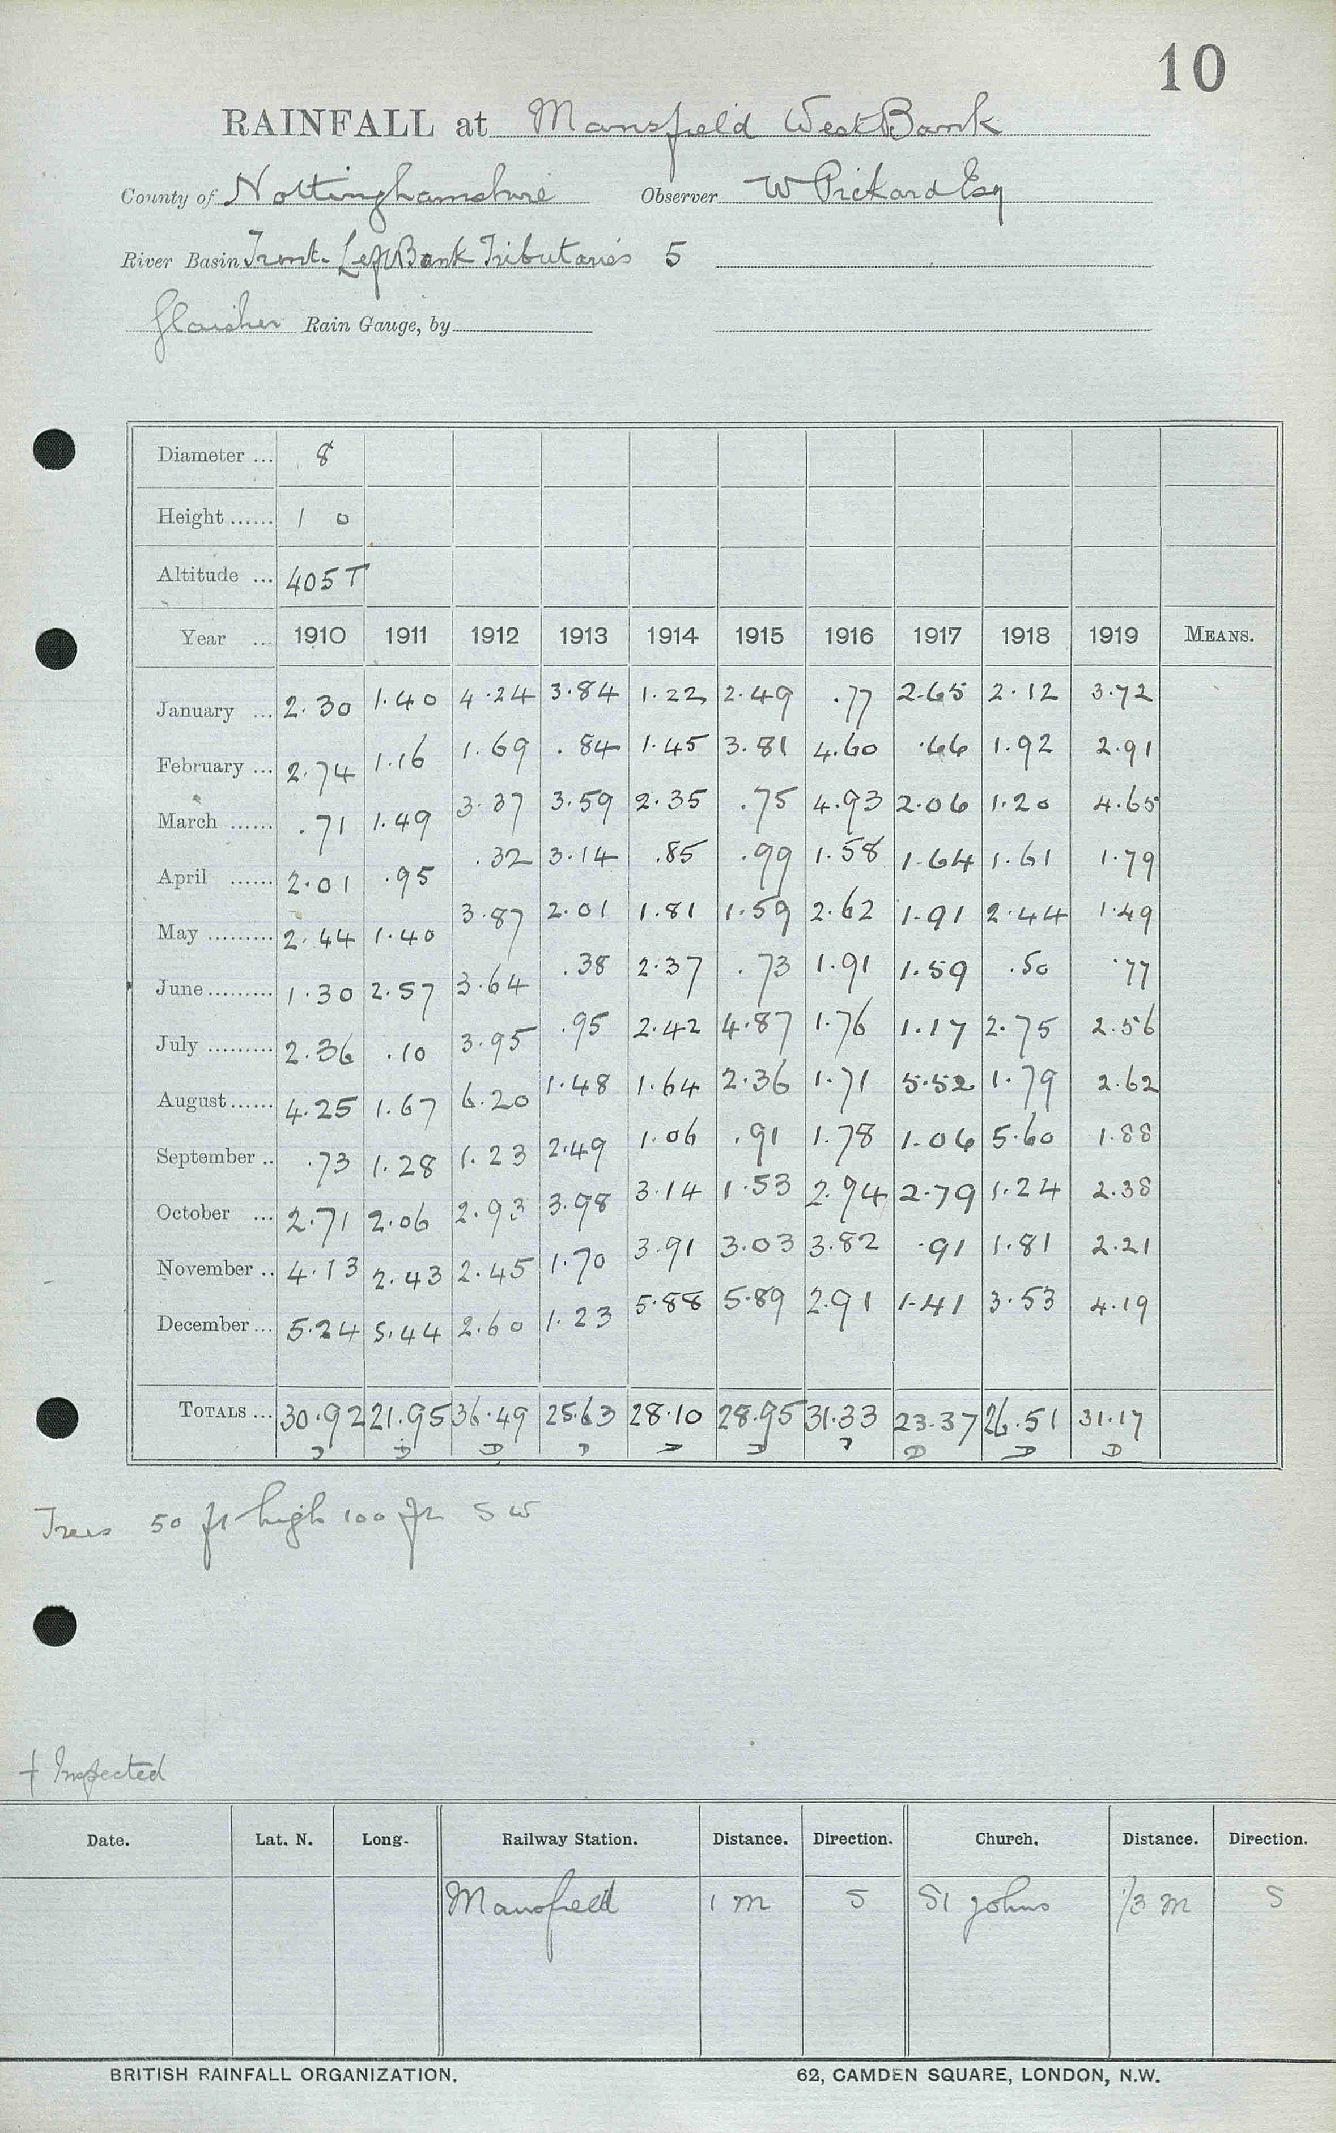 10
RAINFALL at Mansfield West Bank
County of Nottinghamshire Observer W Pickard Esq
River Basin Trent. Left Bank Tributaries 5
Glaisher Rain Gauge, by
Diameter ... 8
Height ...... 1 0
Altitude ... 405 T
Year ... 1910 1911 1912 1913 1914 1915 1916 1917 1918 1919 MEANS.
January ... 2.30 1.40 4.24 3.84 1.22 2.49 .77 2.65 2.12 3.72
February ... 2.74 1.16 1.69 .84 1.45 3.81 4.60 .66 1.92 2.91
March ...... .71 1.49 3.37 3.59 2.35 .75 4.93 2.06 1.20 4.65
April ...... 2.01 .95 .32 3.14 .85 .99 1.58 1.64 1.61 1.79
May ......... 2.44 1.40 3.87 2.01 1.81 1.59 2.62 1.91 2.44 1.49
June ......... 1.30 2.57 3.64 .38 2.37 .73 1.91 1.59 .50 .77
July ......... 2.36 .10 3.95 .95 2.42 4.87 1.76 1.17 2.75 2.56
August ...... 4.25 1.67 6.20 1.48 1.64 2.36 1.71 5.52 1.79 2.62
September .. .73 1.28 1.23 2.49 1.06 .91 1.78 1.06 5.60 1.88
October ... 2.71 2.06 2.93 3.98 3.14 1.53 2.94 2.79 1.24 2.38
November .. 4.13 2.43 2.45 1.70 3.91 3.03 3.82 .91 1.81 2.21
December ... 5.24 5.44 2.60 1.23 5.88 5.89 2.91 1.41 3.53 4.19
TOTALS ... 30.92 21.95 36.49 25.63 28.10 28.95 31.33 23.37 26.51 31.17
D D D D D D D D D D
Trees 50 ft high 100 ft SW
† Inspected
Date. Lat. N. Long. Railway Station. Distance. Direction. Church. Distance. Direction.
Mansfield 1 m S St Johns 1/3 m S
BRITISH RAINFALL ORGANIZATION. 62, CAMDEN SQUARE, LONDON, N.W.